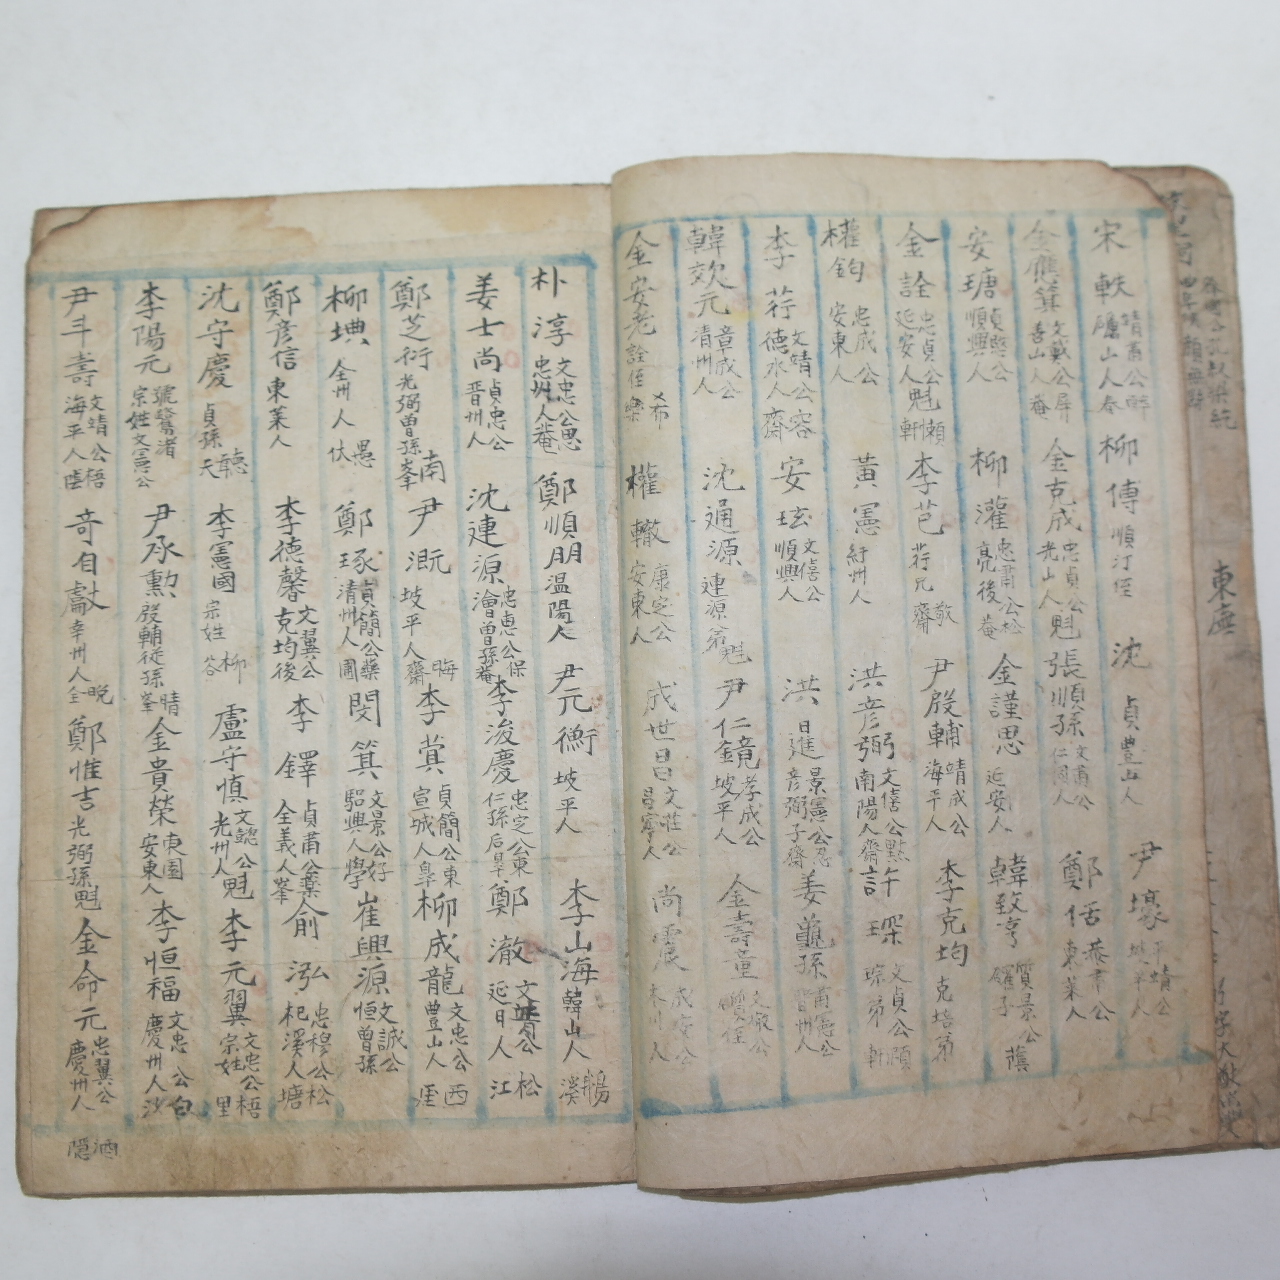 宋軼 礪山人 靖肅公 春軒 柳傳 順汀侄 沈貞 豊山人 尹壕 坡平人 平靖公
金應箕 善山人 文戴公 屏菴 金克成 光山人 忠貞公 魁 張順孫 仁同人 文肅公 鄭佸 東萊人 恭肅公
安瑭 順興人 貞愍公 柳灌 亮後 忠肅公 松菴 金謹思 延安人 韓致亨 確子 質景公 蔭
金詮 延安人 忠貞公 魁 懶軒 李芑 荇兄 敬齋 尹殷輔 海平人 靖成公 李克均 克培弟
權鈞 安東人 忠成公 黃憲 紆州人 洪彦弼 南陽人 文僖公 默齋 許琛 琮弟 文貞公 頤軒
李荇 德水人 文靖公 容齋 安玹 順興人 文僖公 洪暹 彦弼子 景憲公 忍齋 姜龜孫 晋州人 肅憲公
韓效元 清州人 章成公 沈通源 連源弟 魁 尹仁鏡 坡平人 孝成公 金壽童 礩侄 文敬公
金安老 詮侄 希樂 權轍 安東人 康定公 成世昌 昌寧人 文莊公 尚震 木川人 成安公
東廡
朴淳 忠州人 文忠公 思菴 鄭順朋 溫陽人 尹元衡 坡平人 李山海 韓山人 鵝溪
姜士尚 晋州人 貞忠公 沈連源 澮曾孫 忠惠公 保菴 李浚慶 仁孫后 忠定公 東皐 鄭澈 延日人 文清公 松江
鄭芝衍 光弼曾孫 南峯 尹漑 坡平人 晦齋 李蓂 宣城人 貞簡公 東皐 柳成龍 豊山人 文忠公 西厓
柳㙉 全州人 愚伏 鄭琢 清州人 貞簡公 藥圃 閔箕 驪興人 文景公 好學 崔興源 恒曾孫 文誠公
鄭彦信 東萊人 李德馨 克均後 文翼公 李鐸 全義人 貞肅公 藥峯 俞泓 杞溪人 忠穆公 松塘
沈守慶 貞孫 聽天 李憲國 宗姓 柳谷 盧守愼 光州人 文懿公 魁 李元翼 宗姓 文忠公 梧里
李陽元 宗姓 文憲公 號鷺渚 尹承勳 殷輔從孫 晴峯 金貴榮 安東人 東園 李恒福 慶州人 文忠公 白沙
尹斗壽 海平人 文靖公 梧陰 奇自獻 幸州人 晩全 鄭惟吉 光弼孫 魁 金命元 慶州人 忠翼公 酒隱